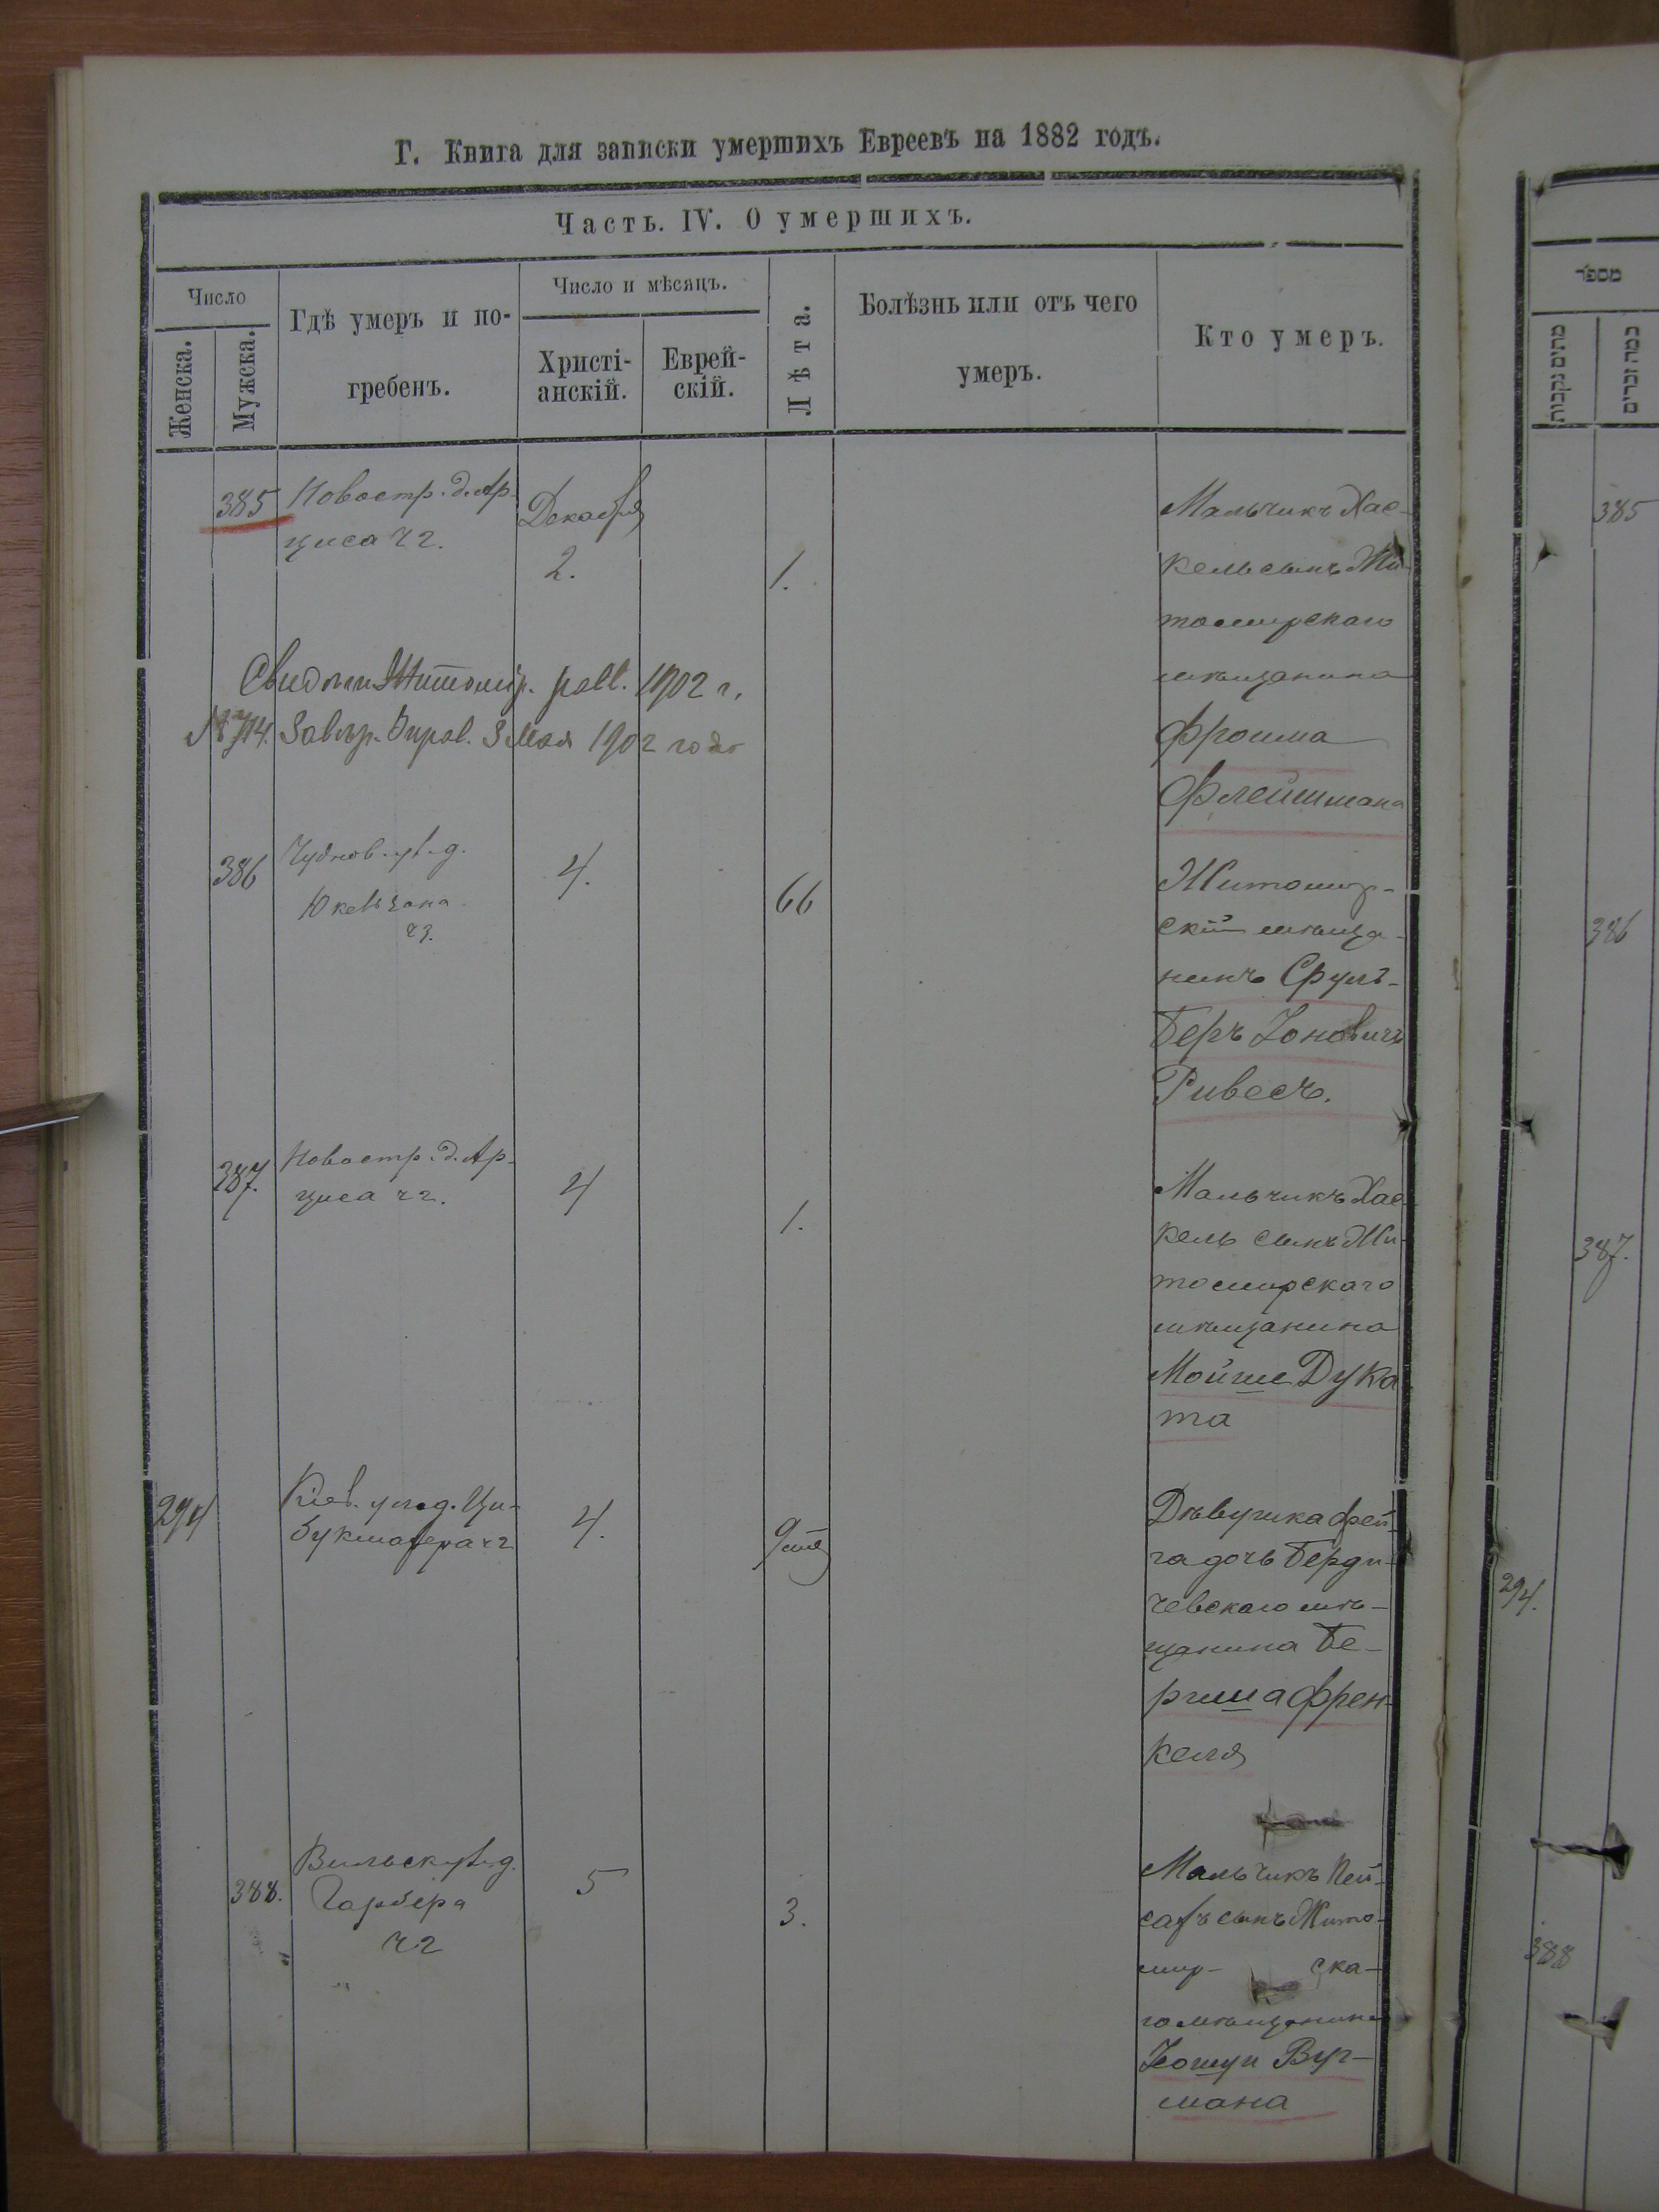 Г. Книга для записки умершихъ Евреевъ на 1882 годъ.
Часть. IV. О умершихъ.
Число
Женска.
Мужска.
Гдѣ умеръ и по-
гребенъ.
Число и мѣсяцъ.
Христі-
анскій.
Еврей-
скій.
Лѣта.
Болѣзнь или отъ чего
умеръ.
Кто умеръ.
385
Новостр. д. Ар-
циса ч 2.
Декабря
2.
1.
Мальчикъ Хас-
кель сынъ Жи-
томирскаго
мѣщанина
Фроима
Флейшмана
Житомір. 1902 г.
3 мая 1902 года
386
Чуднов. ул. д.
ч 3.
4.
66
Житомир-
скій мѣща-
нинъ Сруль-
Беръ Іоновичъ
Ривесъ.
387.
Новостр. д. Ар-
циса ч 2.
4
1.
Мальчикъ Хас-
кель сынъ Жи-
томирскаго
мѣщанина
Мойше Дука
та
294
Кіев. ул. д. Ци-
ч 2
4.
9
Дѣвушка Фей-
га дочь Берди-
чевскаго мѣ-
щанина Бе-
риша Френ-
келя
388.
Вильск. ул. д.
Гарбера
ч 2
5
3.
Мальчикъ Пей-
сахъ сынъ Жито-
мир- ска-
го мѣщанина
Іошуи Вуг-
мана
מספר
מתים נקבות
כמה זכרים
385
386
387.
294.
388